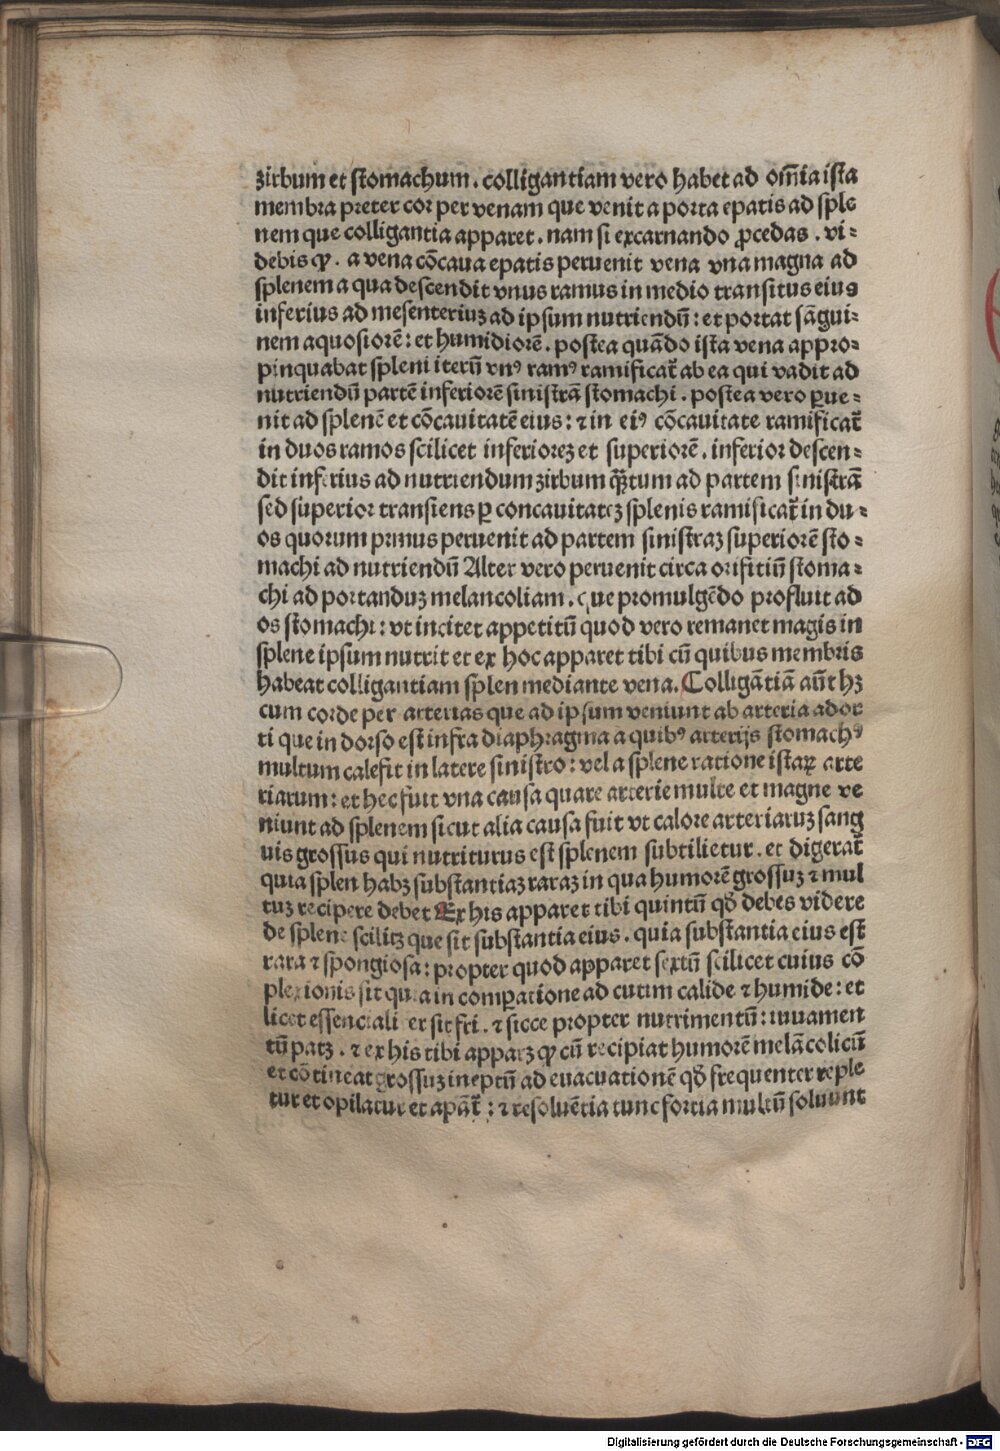 zirbum et stomachum . colligantiam vero habet ad om̄ia ista
membra preter cor per venam que venit a porta epatis ad sple
nem que colligantia apparet . nam si excarnando ꝓcedas . vi⸗
debis ꝙ . a vena cōcaua epatis peruenit vena vna magna ad
splenem a qua descendit vnus ramus in medio transitus eius
inferius ad mesenteriuꝫ ad ipsum nutriendū : et portat sāgui⸗
nem aquosiorē : et humidiorē . postea quādo ista vena appro⸗
pinquabat spleni iterū vnꝰ ramꝰ ramificat̄ ab ea qui vadit ad
nutriendū partē inferiorē sinistrā stomachi . postea vero ꝑue⸗
nit ad splenē et cōcauitatē eius : ⁊ in eiꝰ cōcauitate ramificat̄
in duos ramos scilicet inferioreꝫ et superiorē . inferior descen⸗
dit inferius ad nutriendum zirbum q̄ꝫtum ad partem sinistrā
sed superior transiens ꝑ concauitateꝫ splenis ramificat̄ in du⸗
os quorum primus peruenit ad partem sinistraꝫ superiorē sto⸗
machi ad nutriendū Alter vero peruenit circa orifitiū stoma⸗
chi ad portanduꝫ melancoliam . que promulgēdo profluit ad
os stomachi : vt incitet appetitū quod vero remanet magis in
splene ipsum nutrit et ex hoc apparet tibi cū quibus membris
habeat colligantiam splen mediante vena . Colligātiā aūt hꝫ
cum corde per arterias que ad ipsum veniunt ab arteria ador
ti que in dorso est infra diaphragma a quibꝰ arterijs stomachꝰ
multum calefit in latere sinistro : vel a splene ratione istaꝝ arte
riarum : et hec fuit vna causa quare arterie multe et magne ve
niunt ad splenem sicut alia causa fuit vt calore arteriaruꝫ sang
uis grossus qui nutriturus est splenem subtilietur . et digerat̄
quia splen habꝫ substantiaꝫ raraꝫ in qua humorē grossuꝫ ⁊ mul
tuꝫ recipere debet Ex his apparet tibi quintū qđ debes videre
de splene scilitꝫ que sit substantia eius . quia substantia eius est
rara ⁊ spongiosa : propter quod apparet sextū scilicet cuius cō
plexionis sit quia in comꝑatione ad cutim calide ⁊ humide : et
licet essencialiter sit fri . ⁊ sicce propter nutrimentū : iuuamen
tū patꝫ . ⁊ ex his tibi apparꝫ ꝙ cū recipiat humorē melācolicū
et cōtineat grossuꝫ ineptū ad euacuationē qđ frequenter reple
tur et opilatur et apāt̄ : ⁊ resoluētia tunc fortia multū soluunt
Digitalisierung gefördert durch die Deutsche Forschungsgemeinschaft - DFG